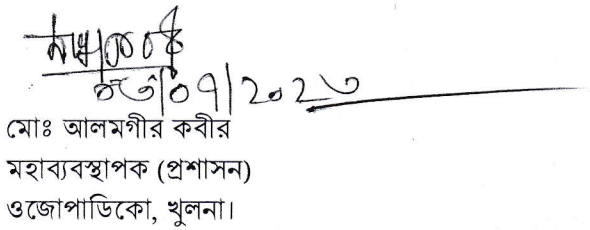 ০৩/০৭/২০২৩
মোঃ আলমগীর কবীর
মহাব্যবস্থাপক (প্রশাসন)
ওজোপাডিকো, খুলনা।